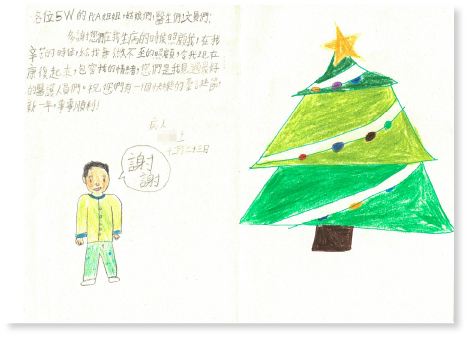 各位5W的PCA姐姐,姑娘們,醫生們,文員們:
多謝您們在我生病的時候照顧我,在我
辛苦的時候,給我無微不至的照顧,令我現在
康復起來,包容我的情緒,您們是我見過最好
的醫護人員們。祝您們有一個快樂的聖誕節,
新一年,事事順利!
病人
十二月二十三日
謝
謝